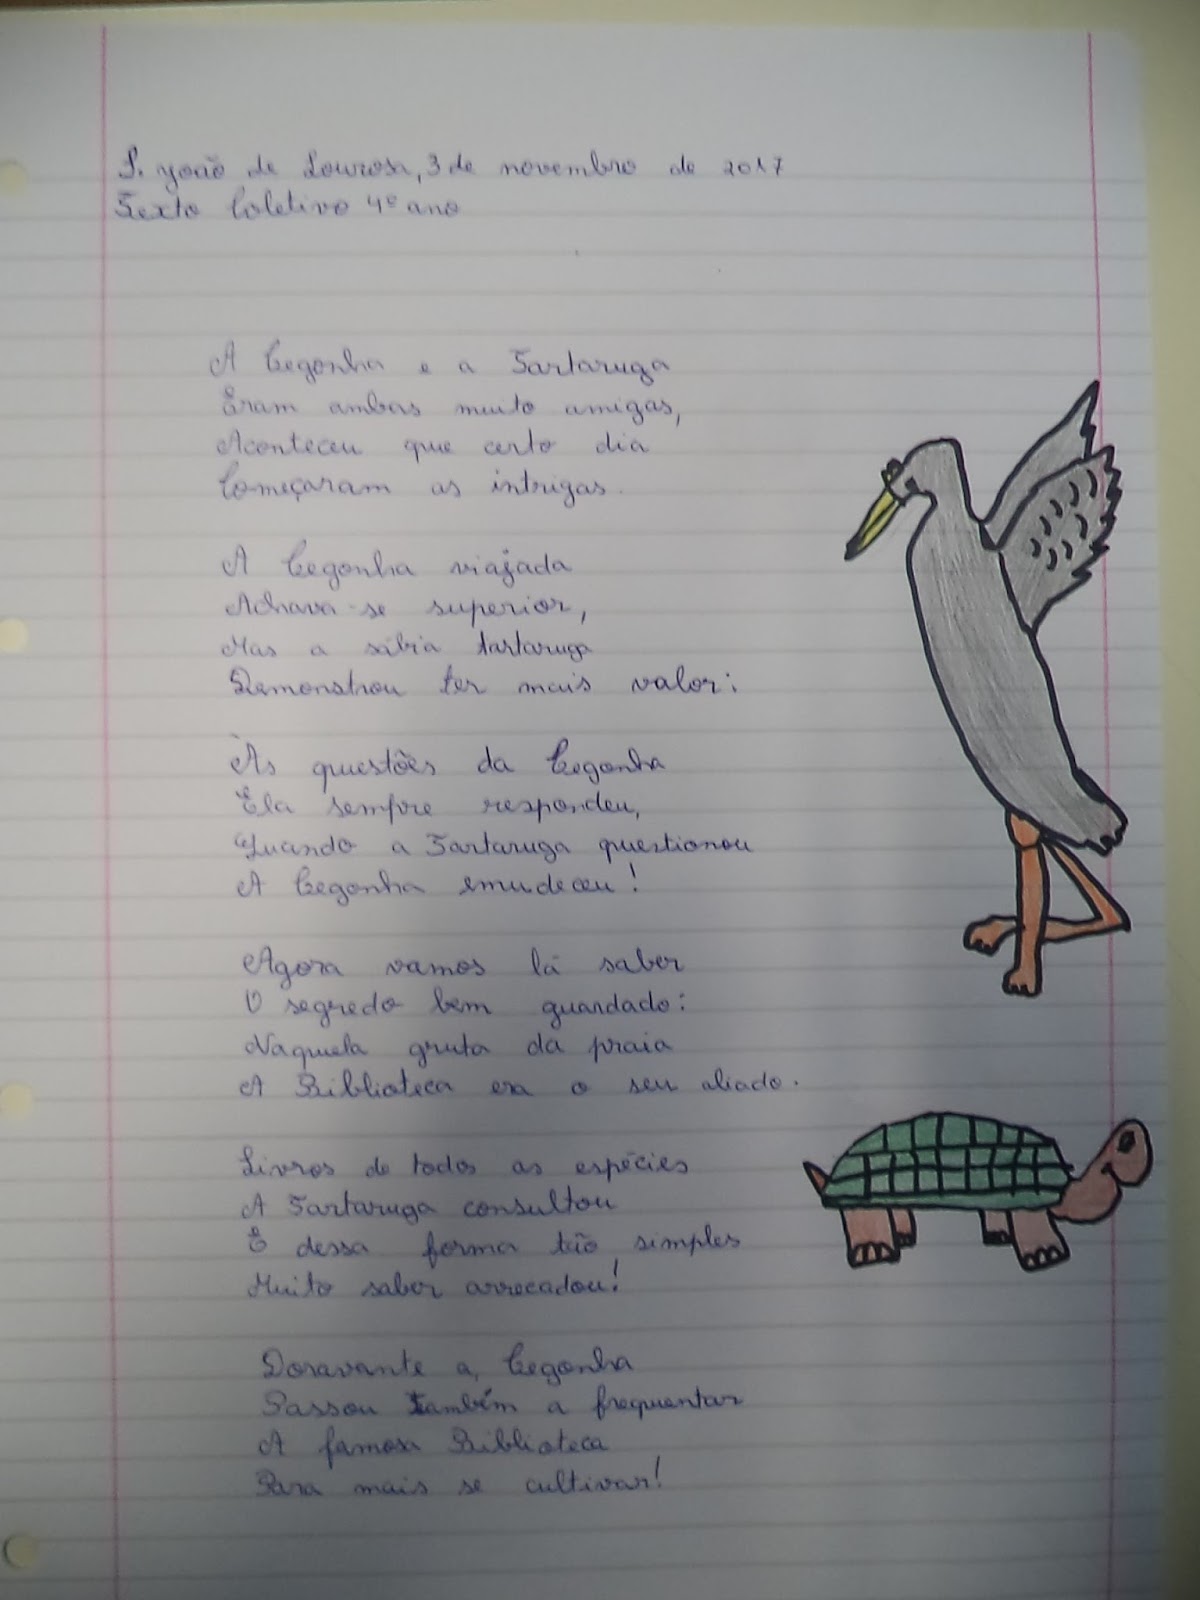 S. João de Lourosa, 3 de novembro de 2017
Texto Coletivo 4º ano
A Cegonha e a Tartaruga
Eram ambas muito amigas,
Aconteceu que certo dia
Começaram as intrigas.
A Cegonha viajada
Achava-se superior,
Mas a sábia tartaruga
Demonstrou ter mais valor:
Às questões da Cegonha
Ela sempre respondeu,
Quando a Tartaruga questionou
A Cegonha emudeceu!
Agora vamos lá saber
O segredo bem guardado:
Naquela gruta da praia
A Biblioteca era o seu aliado.
Livros de todas as espécies
A Tartaruga consultou
E dessa forma tão simples
Muito saber arrecadou!
Doravante a, Cegonha
Passou também a frequentar
A famosa Biblioteca
Para mais se cultivar!